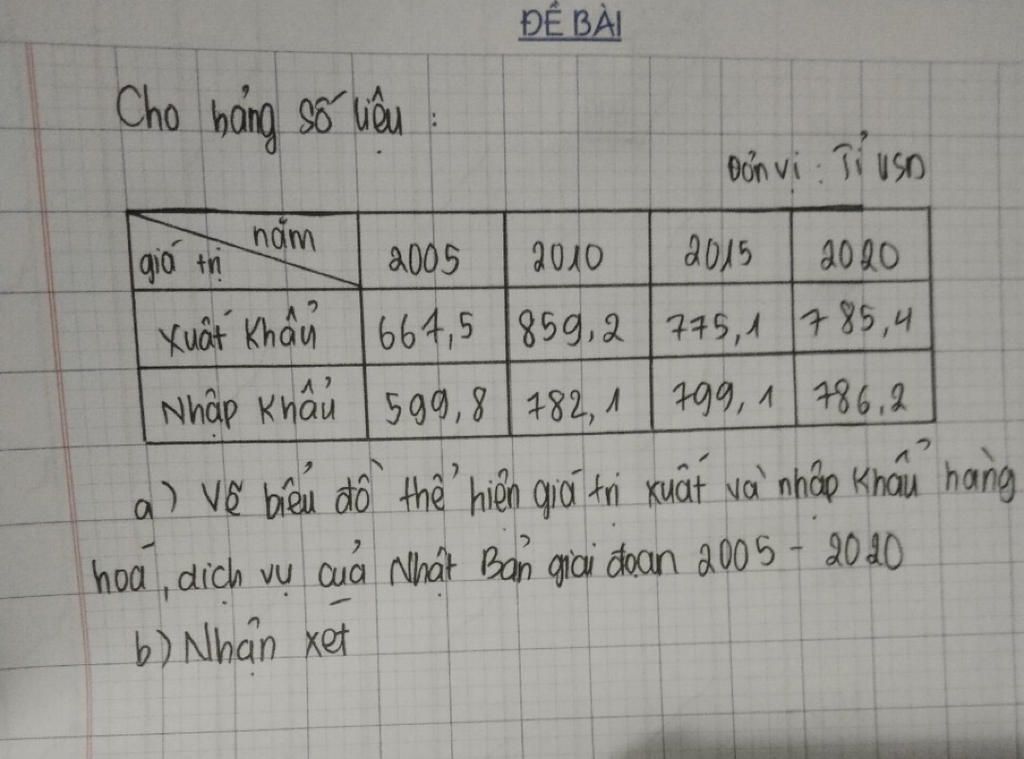 ĐỀ BÀI
Cho bảng số liệu :
Đơn vị : Tỉ USD
năm
giá trị
2005 2010 2015 2020
Xuất Khẩu 667,5 859,2 775,1 785,4
Nhập Khẩu 599,8 782,1 799,1 786,2
a) Vẽ biểu đồ thể hiện giá trị xuất và nhập khẩu hàng
hoá, dịch vụ của Nhật Bản giai đoạn 2005 - 2020
b) Nhận xét